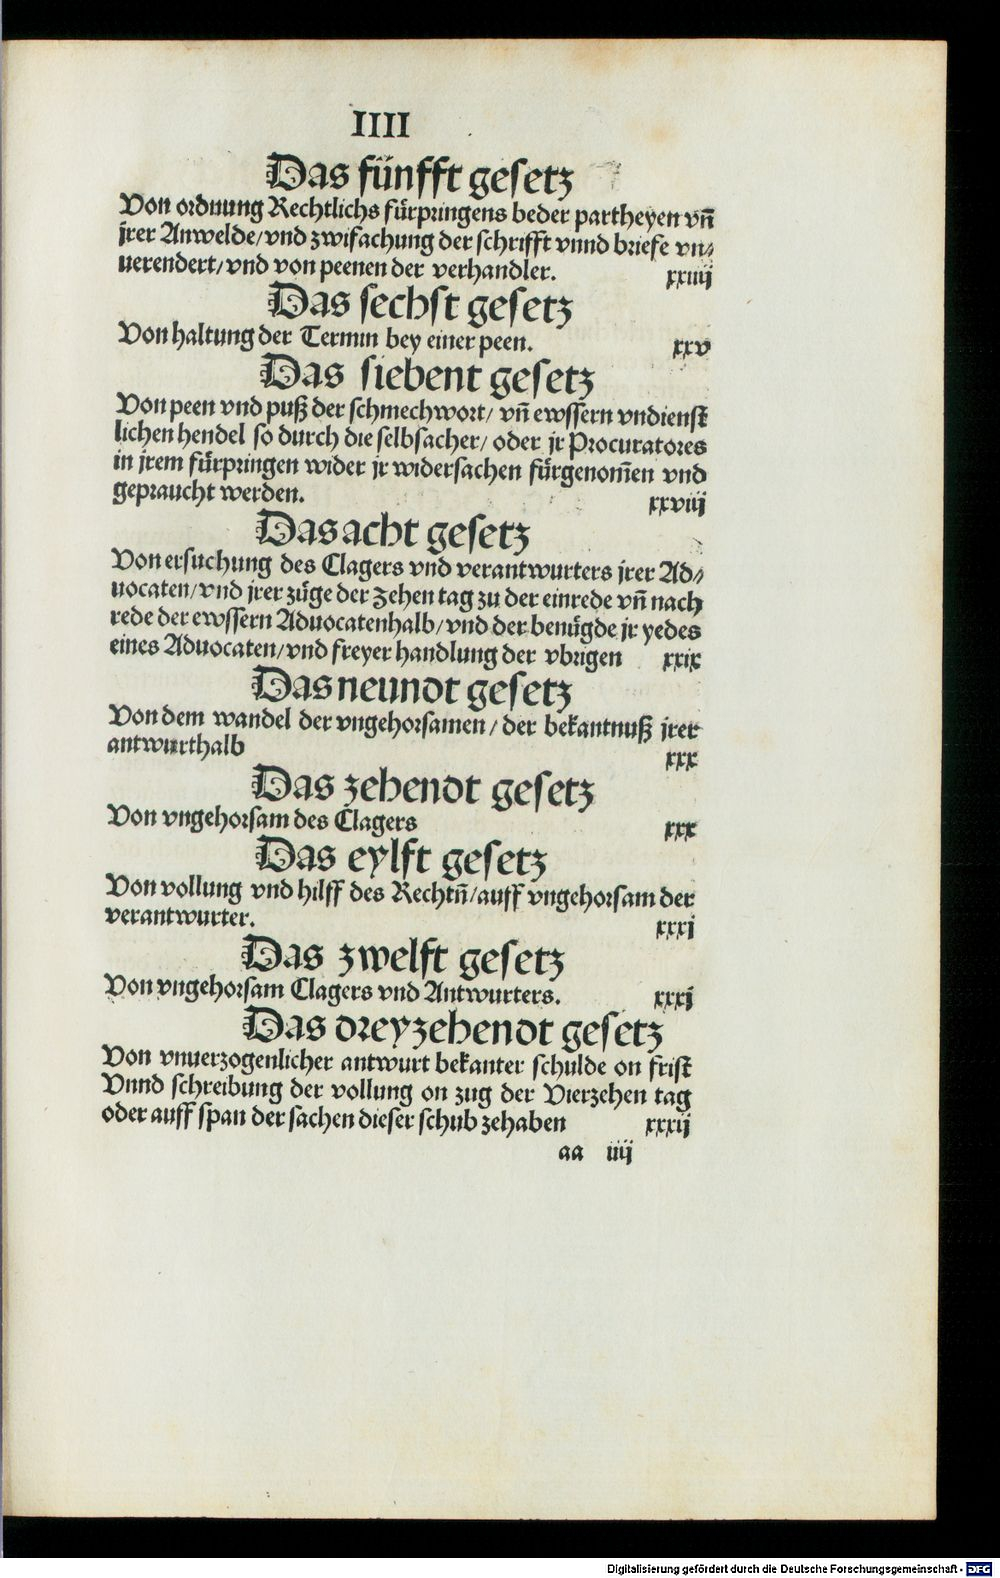 IIII
Das fünfft gesetz
Von ordnung Rechtlichs fürpringens beder partheyen vñ
jrer Anwelde/vnd zwifachung der schrifft vnnd briefe vn/
uerendert/vnd von peenen der verhandler. xxiiij
Das sechst gesetz
Von haltung der Termin bey einer peen. xxv
Das siebent gesetz
Von peen vnd puß der schmechwort/ vñ ewssern vndienst
lichen hendel so durch die selbsacher/ oder jr Procuratores
in jrem fürpringen wider jr widersachen fürgenom̃en vnd
gepraucht werden. xxviij
Das acht gesetz
Von ersuchung des Clagers vnd verantwurters jrer Ad/
uocaten/vnd jrer züge der Zehen tag zu der einrede vñ nach
rede der ewssern Aduocatenhalb/vnd der benügde jr yedes
eines Aduocaten/vnd freyer handlung der vbrigen xxix
Das neundt gesetz
Von dem wandel der vngehorsamen/ der bekantnuß jrer
antwurthalb xxx
Das zehendt gesetz
Von vngehorsam des Clagers xxx
Das eylft gesetz
Von vollung vnd hilff des Rechtñ/auff vngehorsam der
verantwurter. xxxj
Das zwelft gesetz
Von vngehorsam Clagers vnd Antwurters. xxxj
Das dreyzehendt gesetz
Von vnuerzogenlicher antwurt bekanter schulde on frist
Vnnd schreibung der vollung on zug der Vierzehen tag
oder auff span der sachen dieser schub zehaben xxxij
aa iiij
Digitalisierung gefördert durch die Deutsche Forschungsgemeinschaft - DFG